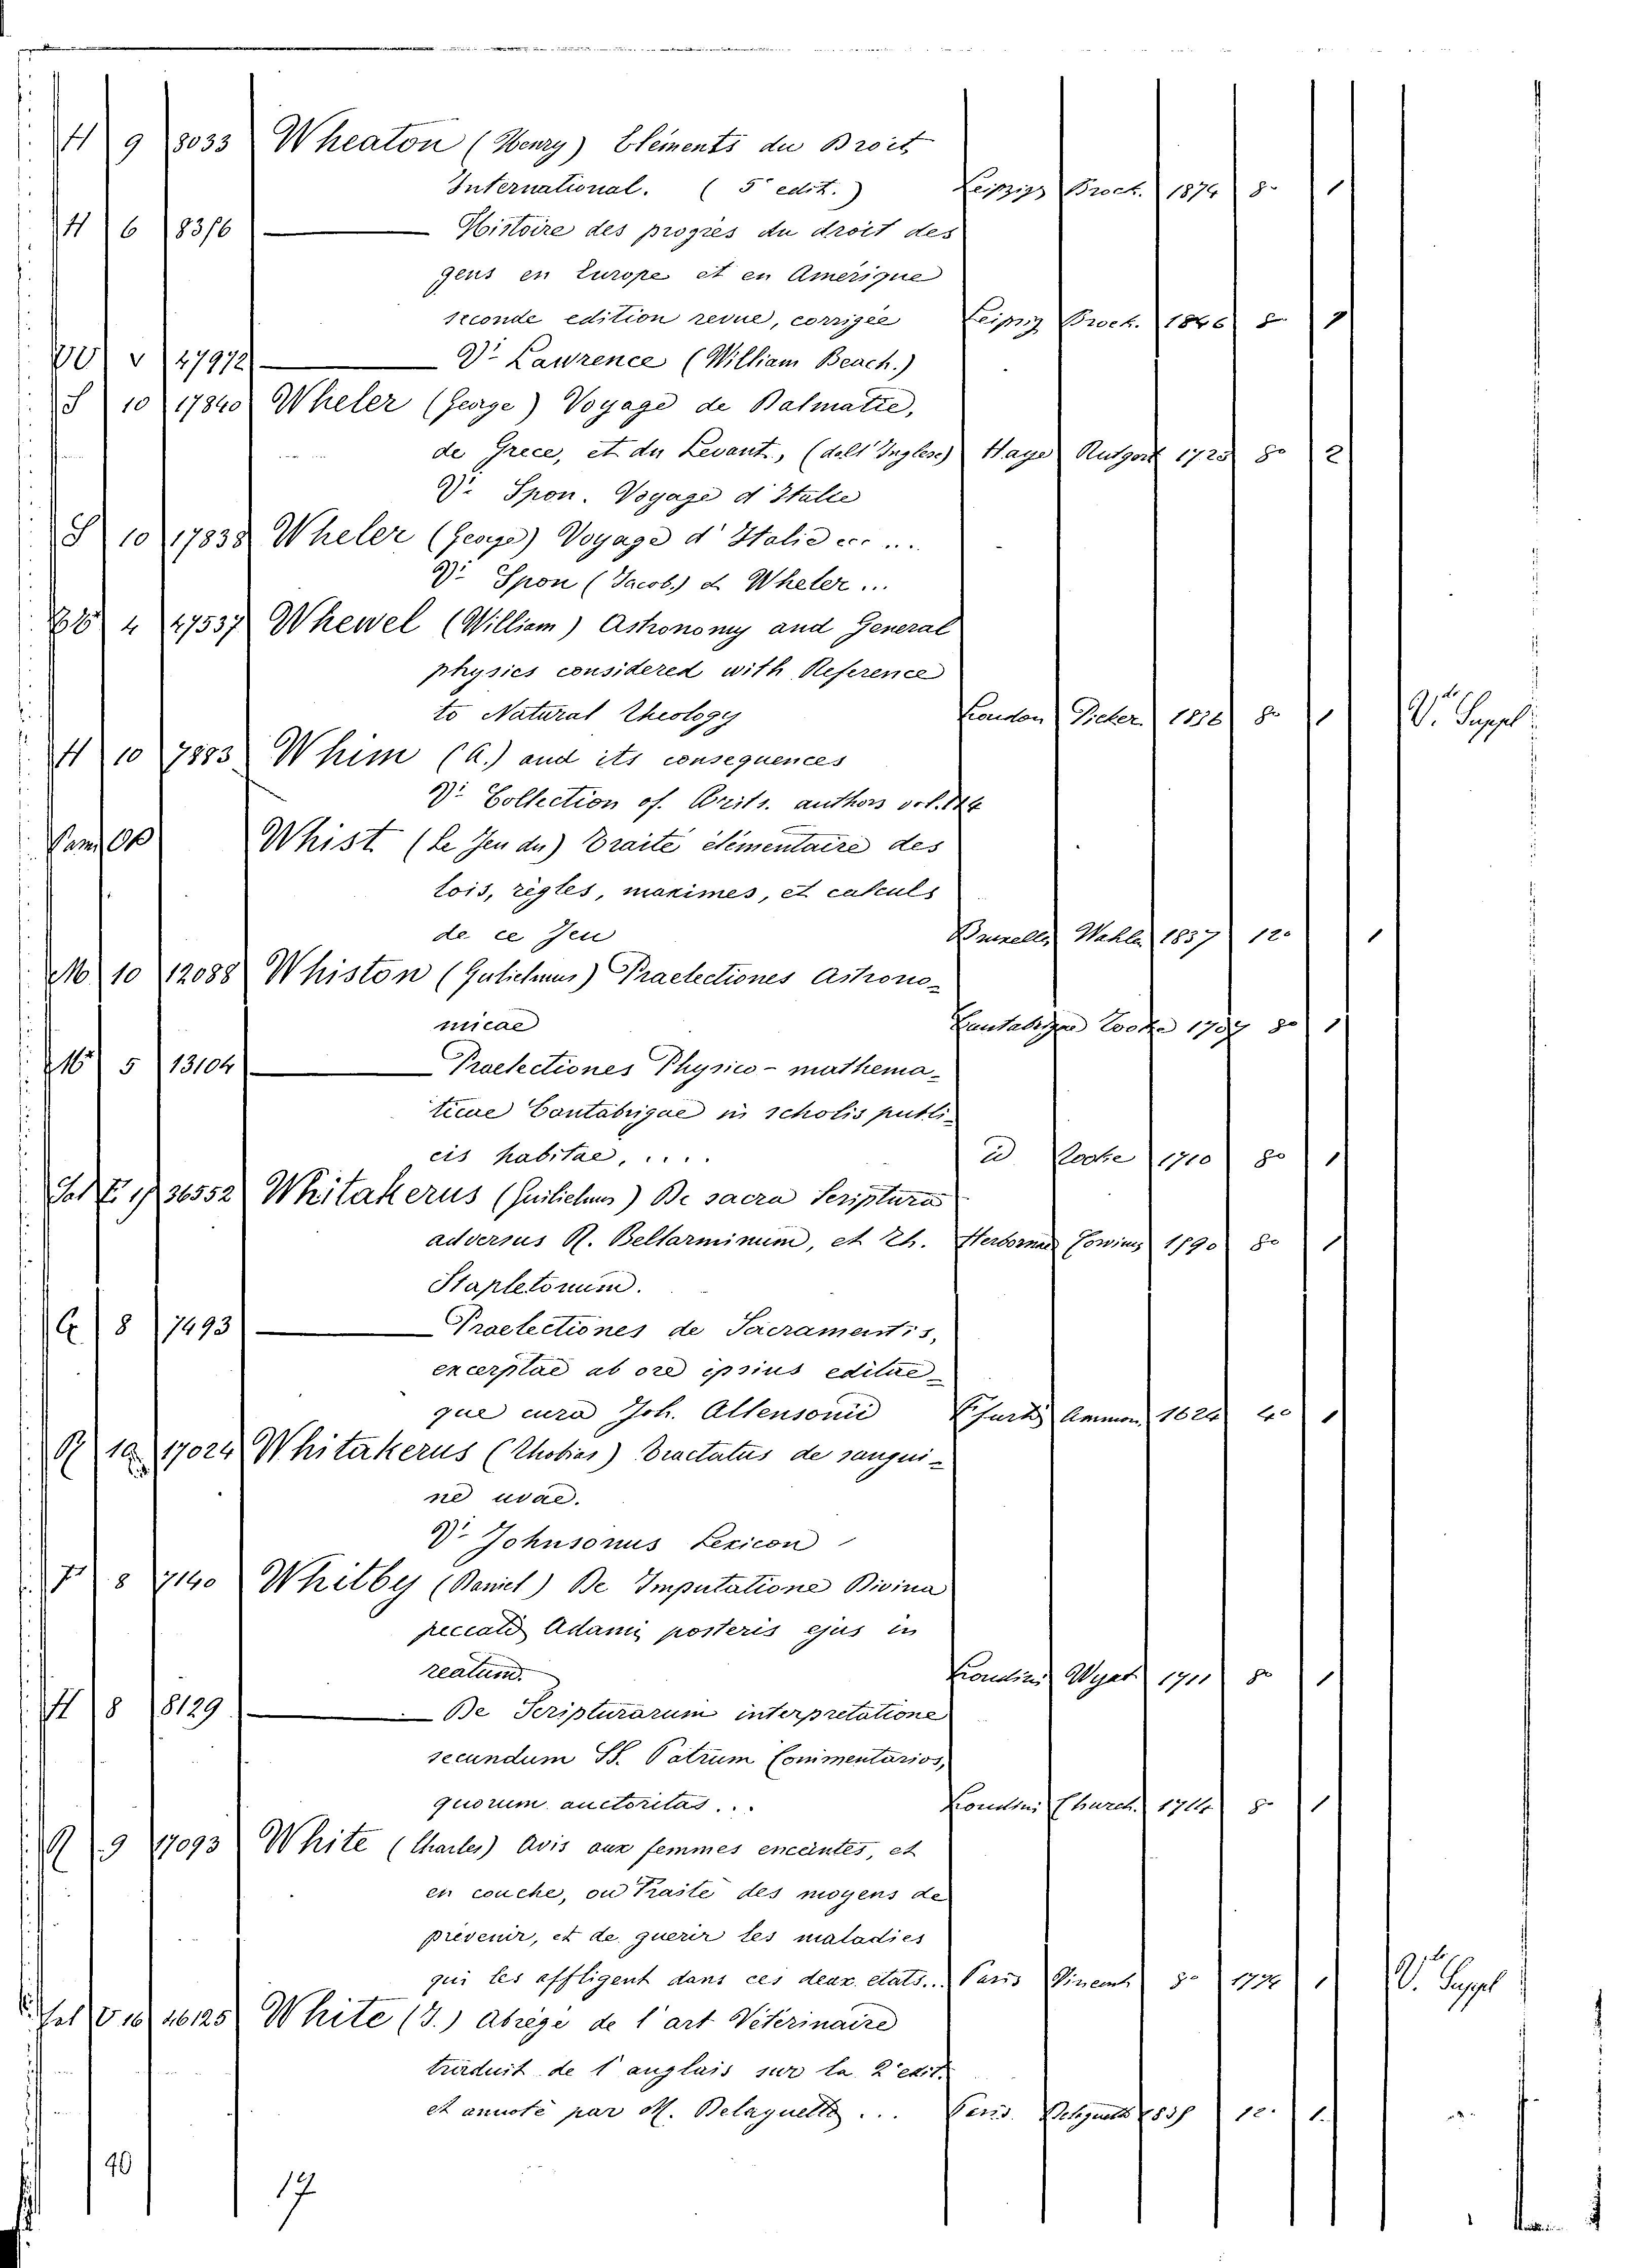 H 9 8033 Wheaton (Henry) Eléments du Droit
International. (5e edit.) Leipzig Broch. 1874 8° 1
H 6 8316 — Histoire des progrès du droit des
gens en Europe et en Amérique
seconde edition revue, corrigée Leipzig Broch. 1846 8° 1
v 47972 — Vi Lawrence (William Beach.)
S 10 17840 Wheler (George) Voyage de Dalmatie,
de Grece, et du Levant, (dall' Inglese) Haye 1723 8° 2
Vi Spon. Voyage d'Italie
S 10 17838 Wheler (George) Voyage d'Italie ecc ...
Vi Spon (Jacob.) & Wheler ...
4 47537 Whewel (William) Astronomy and General
physics considered with Reference
to Natural Theology London Picker. 1836 8° 1 V. Suppl.
H 10 7883 Whim (A.) and its consequences
Vi Collection of. Brits. authors vol.
Whist (Le Jeu du) Traité élémentaire des
lois, règles, maximes, et calculs
de ce Jeu Bruxelles Wahlen 1837 12° 1
M 10 12088 Whiston (Gulielmus) Praelectiones Astrono-
micae Cantabrigae 1707 8° 1
M 5 13104 — Praelectiones Physico-mathema-
ticae Cantabrigae in scholis publi-
cis habitae, .... id 1710 8° 1
36552 Whitakerus (Guilielmus) De sacra Scriptura
adversus R. Bellarminum, et Th. Herbornae 1590 8° 1
Stapletonum.
G 8 7493 — Praelectiones de Sacramentis,
excerptae ab ore ipsius editae-
que cura Joh. Allensonii Ammon. 1624 4° 1
R 10 17024 Whitakerus (Thobias) Tractatus de sangui-
ne uvae.
Vi Johnsonus Lexicon
8 7140 Whitby (Daniel) De Imputatione Divina
peccati Adami posteris ejus in
reatum. Londini Wyat 1711 8° 1
H 8 8129 — De Scripturarum interpretatione
secundum SS. Patrum Commentarios,
quorum auctoritas ... Londini Church. 1714 8° 1
R 9 17093 White (Charles) Avis aux femmes enceintes, et
en couche, ou Traité des moyens de
prevenir, et de guerir les maladies
qui les affligent dans ces deux etats... Paris Vincent 8° 1774 1 V. Suppl
46125 White (J.) Abrégé de l'art Véterinaire
traduit de l'anglais sur la 2e edit.
et annoté par M. Delaguette ... Paris. 12° 1
40
17